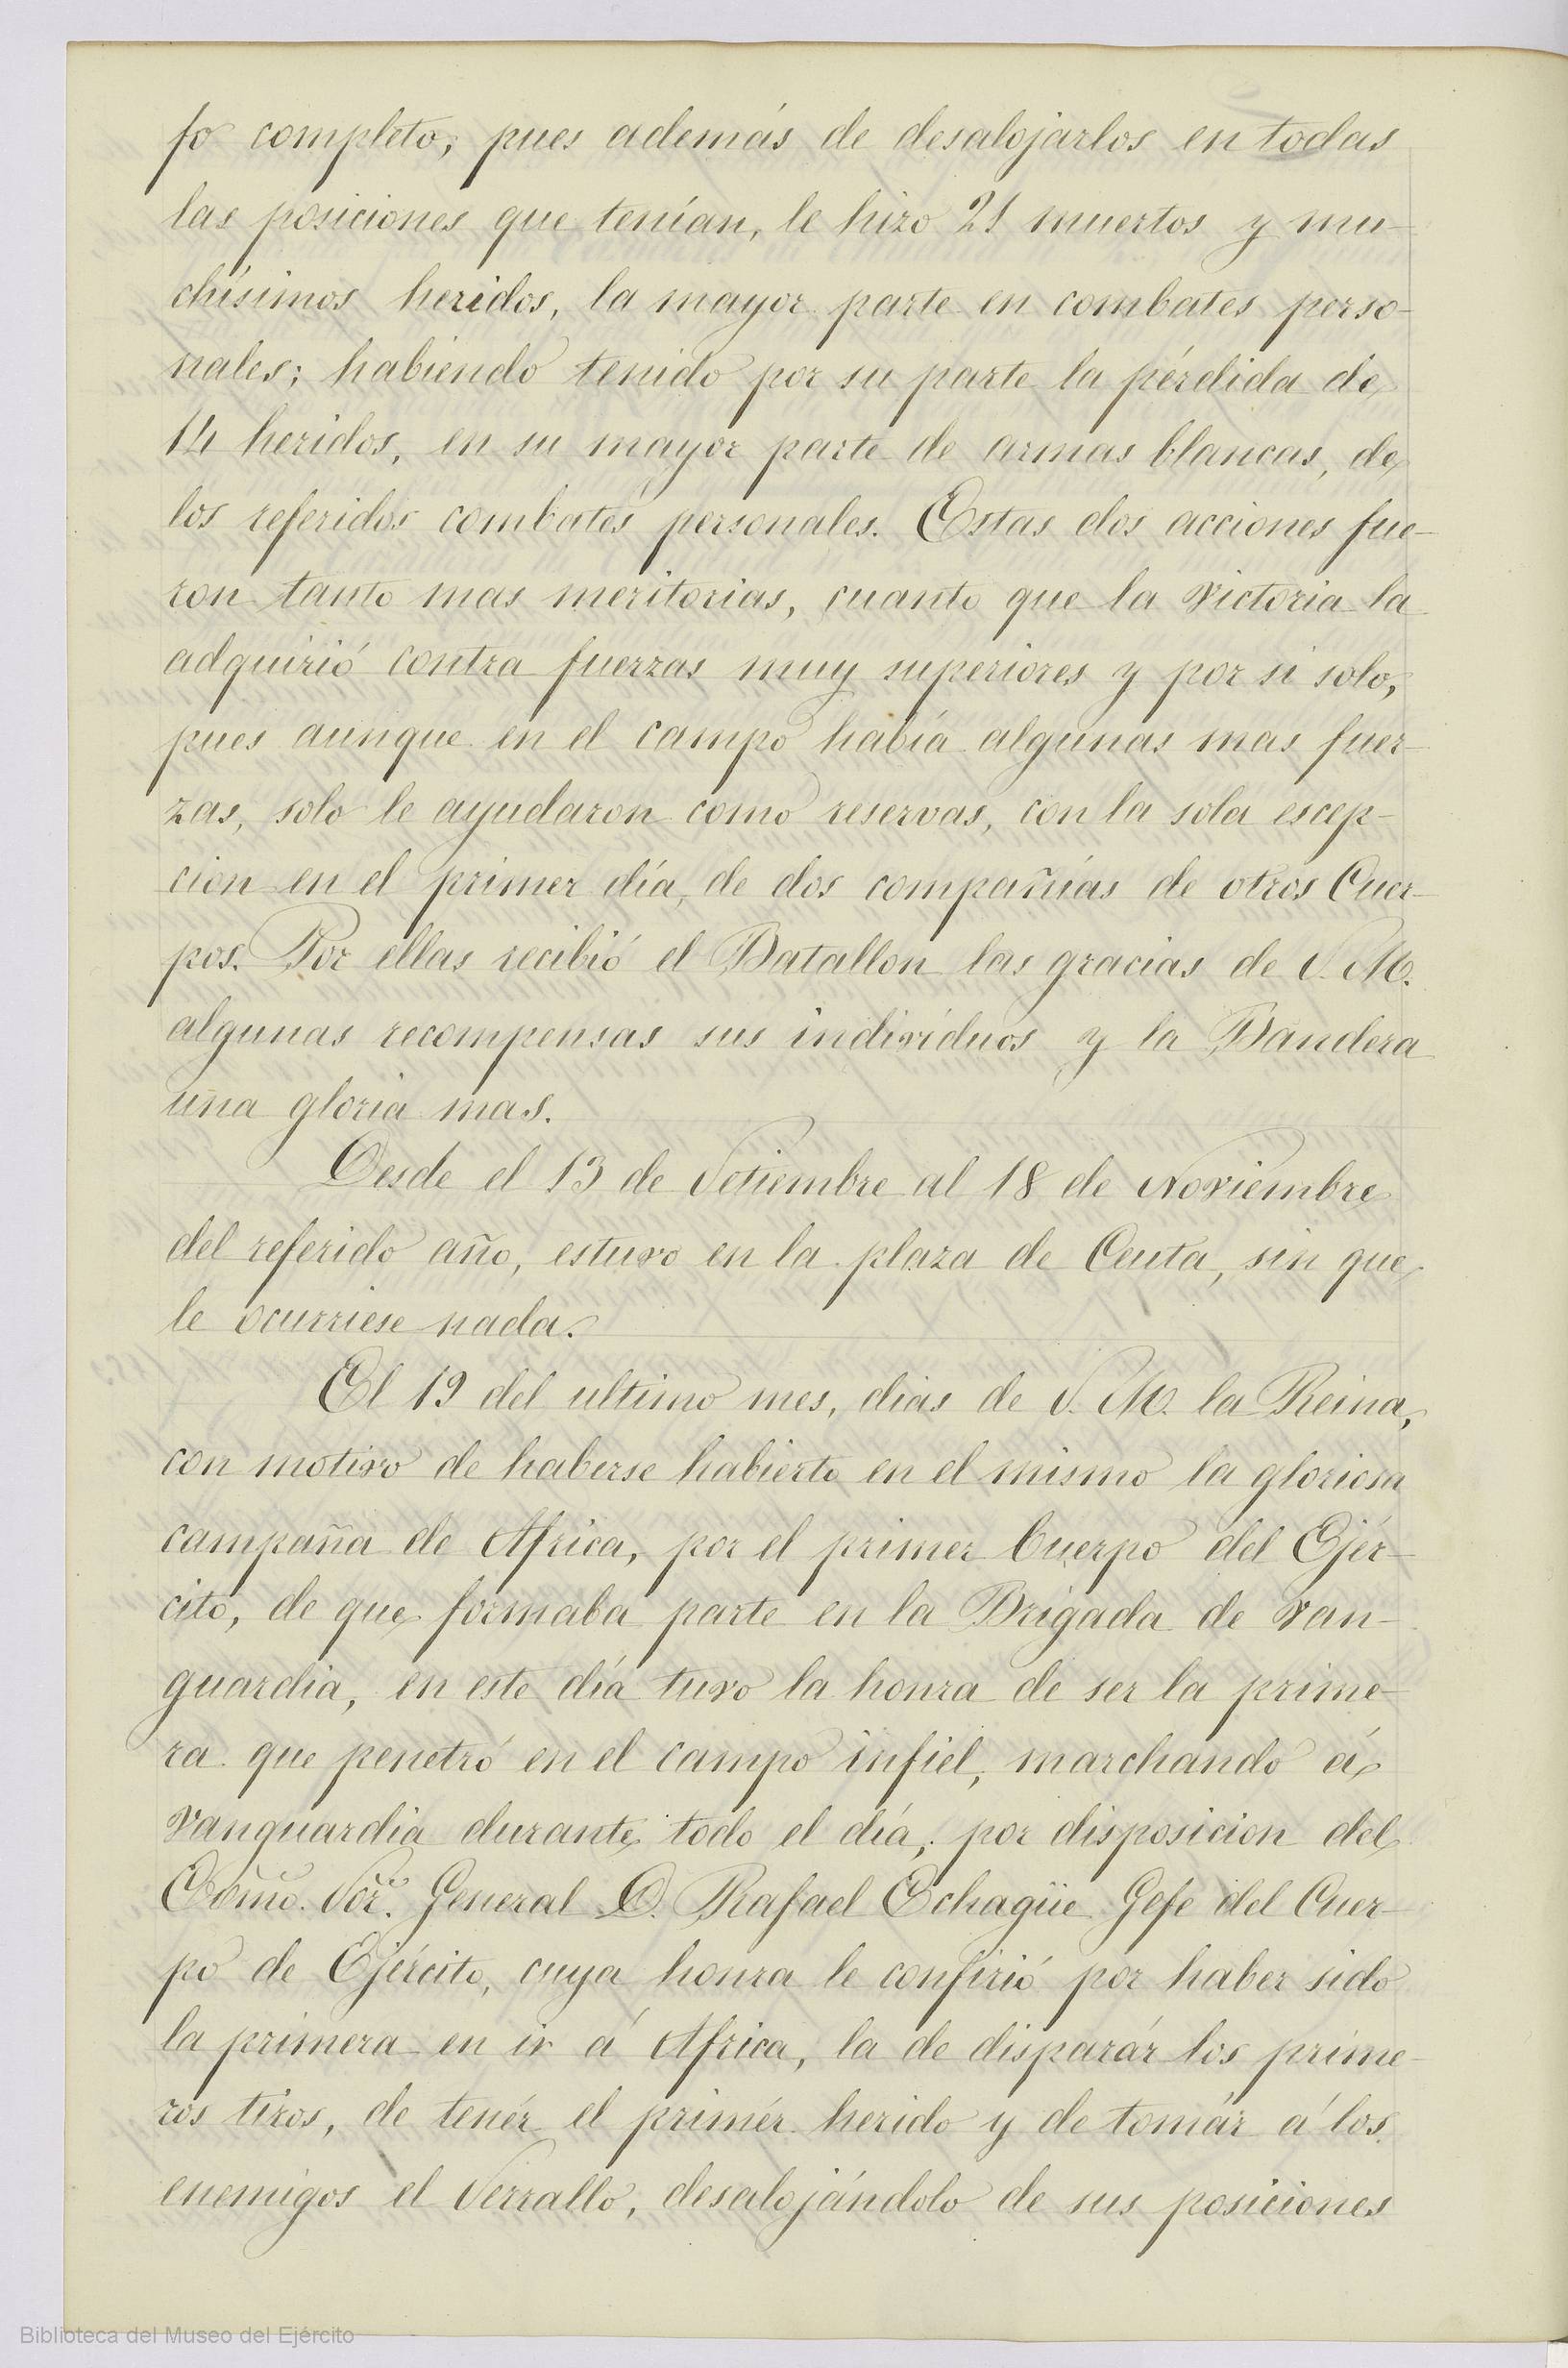 fo completo; pues además de desalojarlos en todas
las posiciones que tenían, le hizo 21 muertos y mu-
chísimos heridos, la mayor parte en combates perso-
nales; habiendo tenido por su parte la pérdida de
14 heridos, en su mayor parte de armas blancas, de
los referidos combates personales. Estas dos acciones fue-
ron tanto mas meritorias, cuanto que la victoria la
adquirió contra fuerzas muy superiores y por si solo,
pues aunque en el campo había algunas mas fuer-
zas, solo le ayudaron como reservas, con la sola escep-
cion en el primer día, de dos compañías de otros Cuer-
pos. Por ellas recibió el Batallon las gracias de S. M.
algunas recompensas sus individuos y la Bandera
una gloria mas.
Desde el 13 de Setiembre al 18 de Noviembre
del referido año, estuvo en la plaza de Ceuta, sin que
le ocurriese nada.
El 19 del ultimo mes, dias de S. M. la Reina,
con motivo de haberse habierto en el mismo la gloriosa
campaña de Africa, por el primer Cuerpo del Ejér-
cito, de que formaba parte en la Brigada de van-
guardia, en este día tuvo la honra de ser la prime-
ra que penetró en el campo infiel, marchando á
vanguardia durante todo el día, por disposicion del
Excmo. Sor. General D. Rafael Echagüe Gefe del Cuer-
po de Ejército, cuya honra le confirió por haber sido
la primera en ir á Africa, la de disparár los prime-
ros tiros, de tenér el primér herido y de tomár á los
enemigos el Serrallo, desalojándolo de sus posiciones
Biblioteca del Museo del Ejército